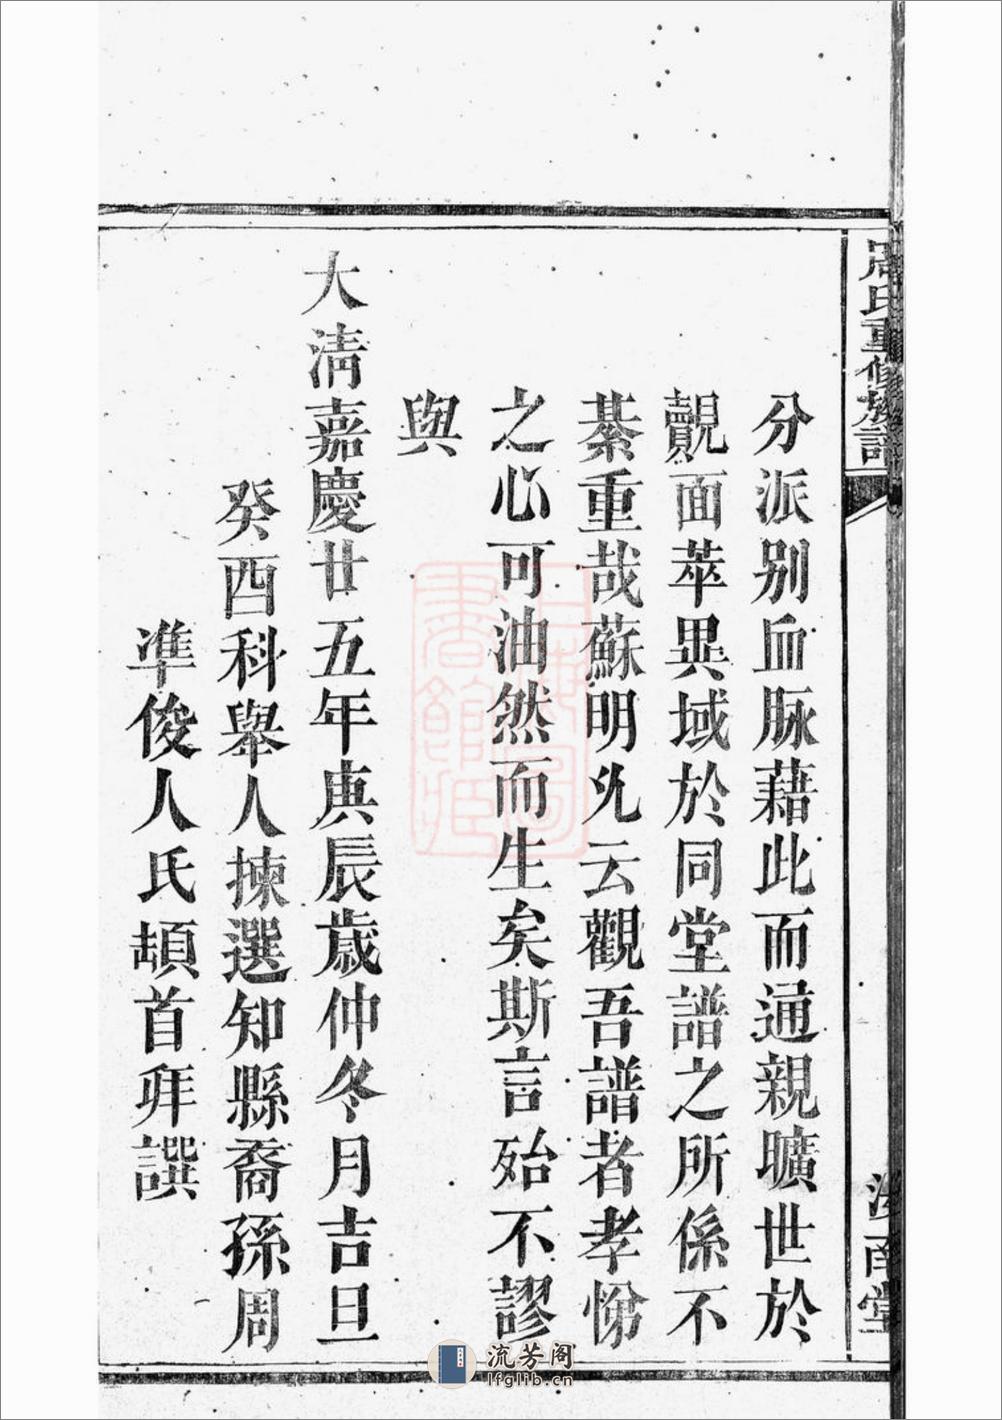 周氏重修族譜
分派别血脉藉此而通親曠世於
覿面萃異域於同堂譜之所係不
綦重哉蘇明允云觀吾譜者孝悌
之心可油然而生矣斯言殆不謬
與
大清嘉慶廿五年庚辰歲仲冬月吉旦
癸酉科舉人揀選知縣裔孫周
準俊人氏頓首拜譔
南堂
上海圖書館藏
流芳阁
lfglib.cn